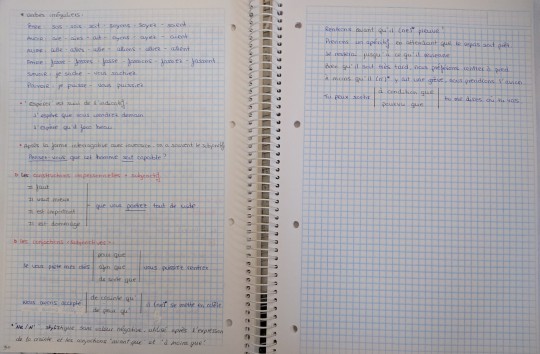 • verbes irréguliers :
Être : sois - sois - soit - soyons - soyez - soient
Avoir : aie - aies - ait - ayons - ayez - aient
Aller : aille - ailles - aille - allions - alliez - aillent
Faire : fasse - fasses - fasse - fassions - fassiez - fassent
Savoir : je sache - vous sachiez
Pouvoir : je puisse - vous puissiez
• "espérer" est suivi de l'indicatif
J'espère que vous viendrez demain
J'espère qu'il fera beau
• après la forme interrogative avec inversion, on a souvent le subjonctif
Pensez-vous que cet homme soit capable ?
b. Les constructions impersonnelles + subjonctif
Il faut
Il vaut mieux
Il est important
Il est dommage
que vous partiez tout de suite
Les conjonctions + subjonctif
Je vous prête mes clés
pour que
afin que
de sorte que
vous puissiez rentrer
Nous avons accepté
de crainte qu'
de peur qu'
il (ne)* se mette en colère
* "Ne / N'" stylistique sans valeur négative, utilisé après l'expression
de la crainte et les conjonctions "avant que" et "à moins que"
Rentrons avant qu'il (ne)* pleuve !
Prenons un apéritif en attendant que le repas soit prêt
Je resterai jusqu'à ce qu'il revienne
Bien qu'il soit très tard, nous préférons rentrer à pied
À moins qu'il (n')* y ait une grève, nous prendrons l'avion
Tu peux sortir
à condition que
pourvu que
tu me dises où tu vas